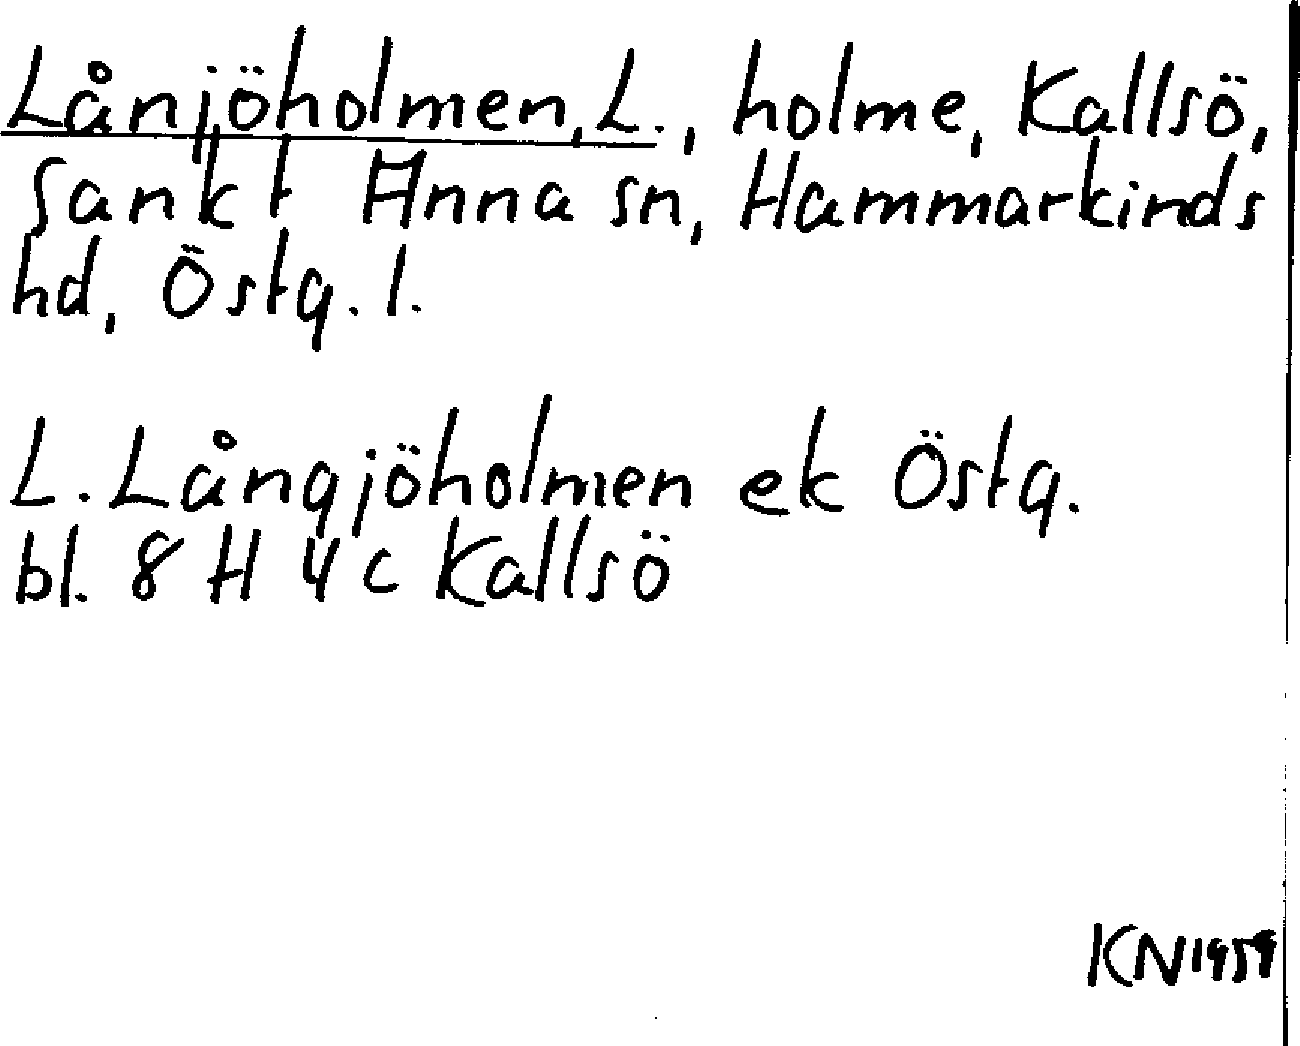 Lånjöholmen, L., holme, Kallsö,
Sankt Anna sn, Hammarkinds
hd, Östg. l.
L. Långjöholmen ek Östg.
bl. 8 H 4 c Kallsö
KN 1959